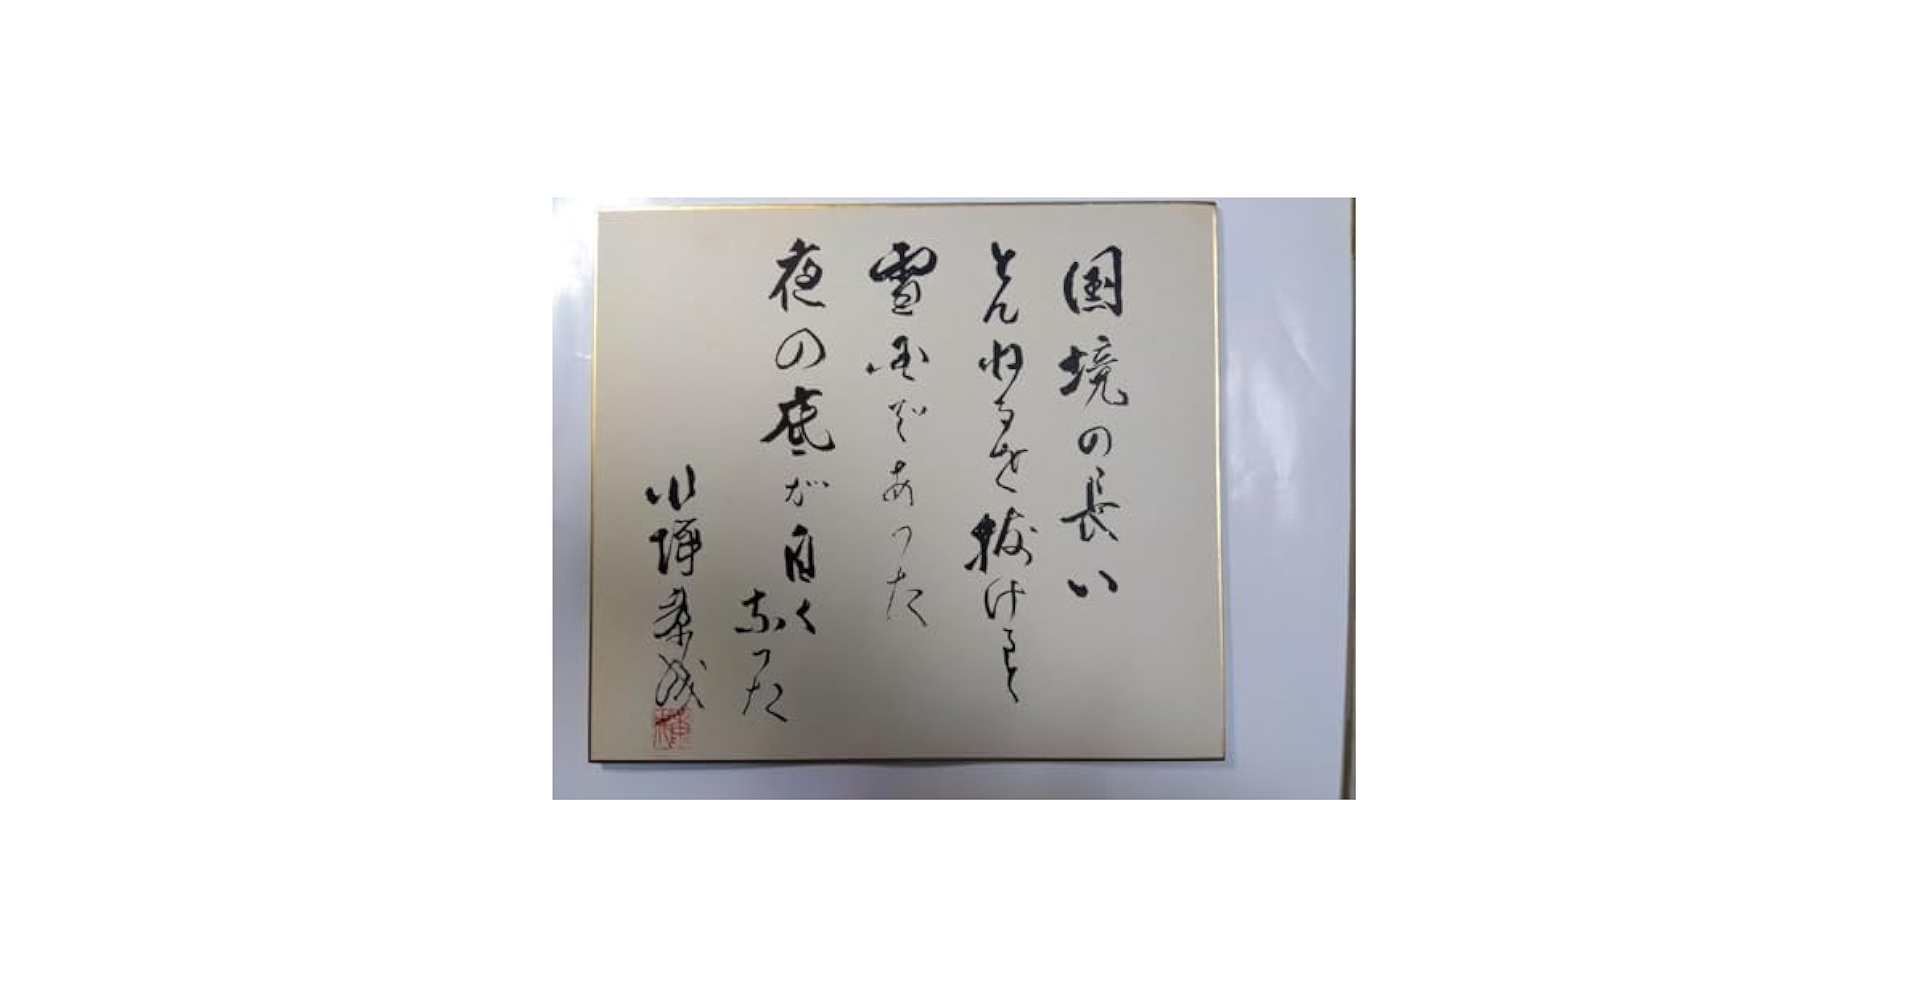 国境の長い
とんねるを抜けると
雪国であった
夜の底が白く
なった
川端康成